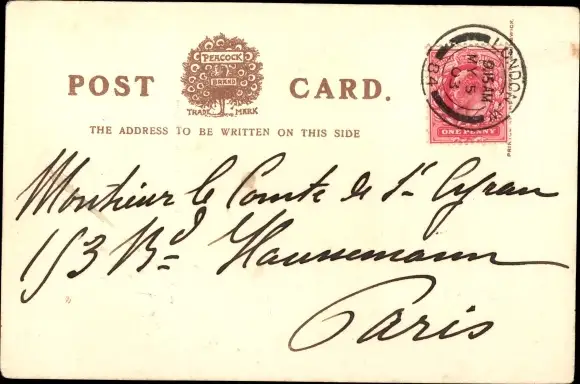 PEACOCK
BRAND
TRADE MARK
POST CARD.
THE ADDRESS TO BE WRITTEN ON THIS SIDE
LONDON. W
9.15 AM
MY 5
03
ONE PENNY
Monsieur le Comte de St Cyran
153 Bd Haussemann
Paris